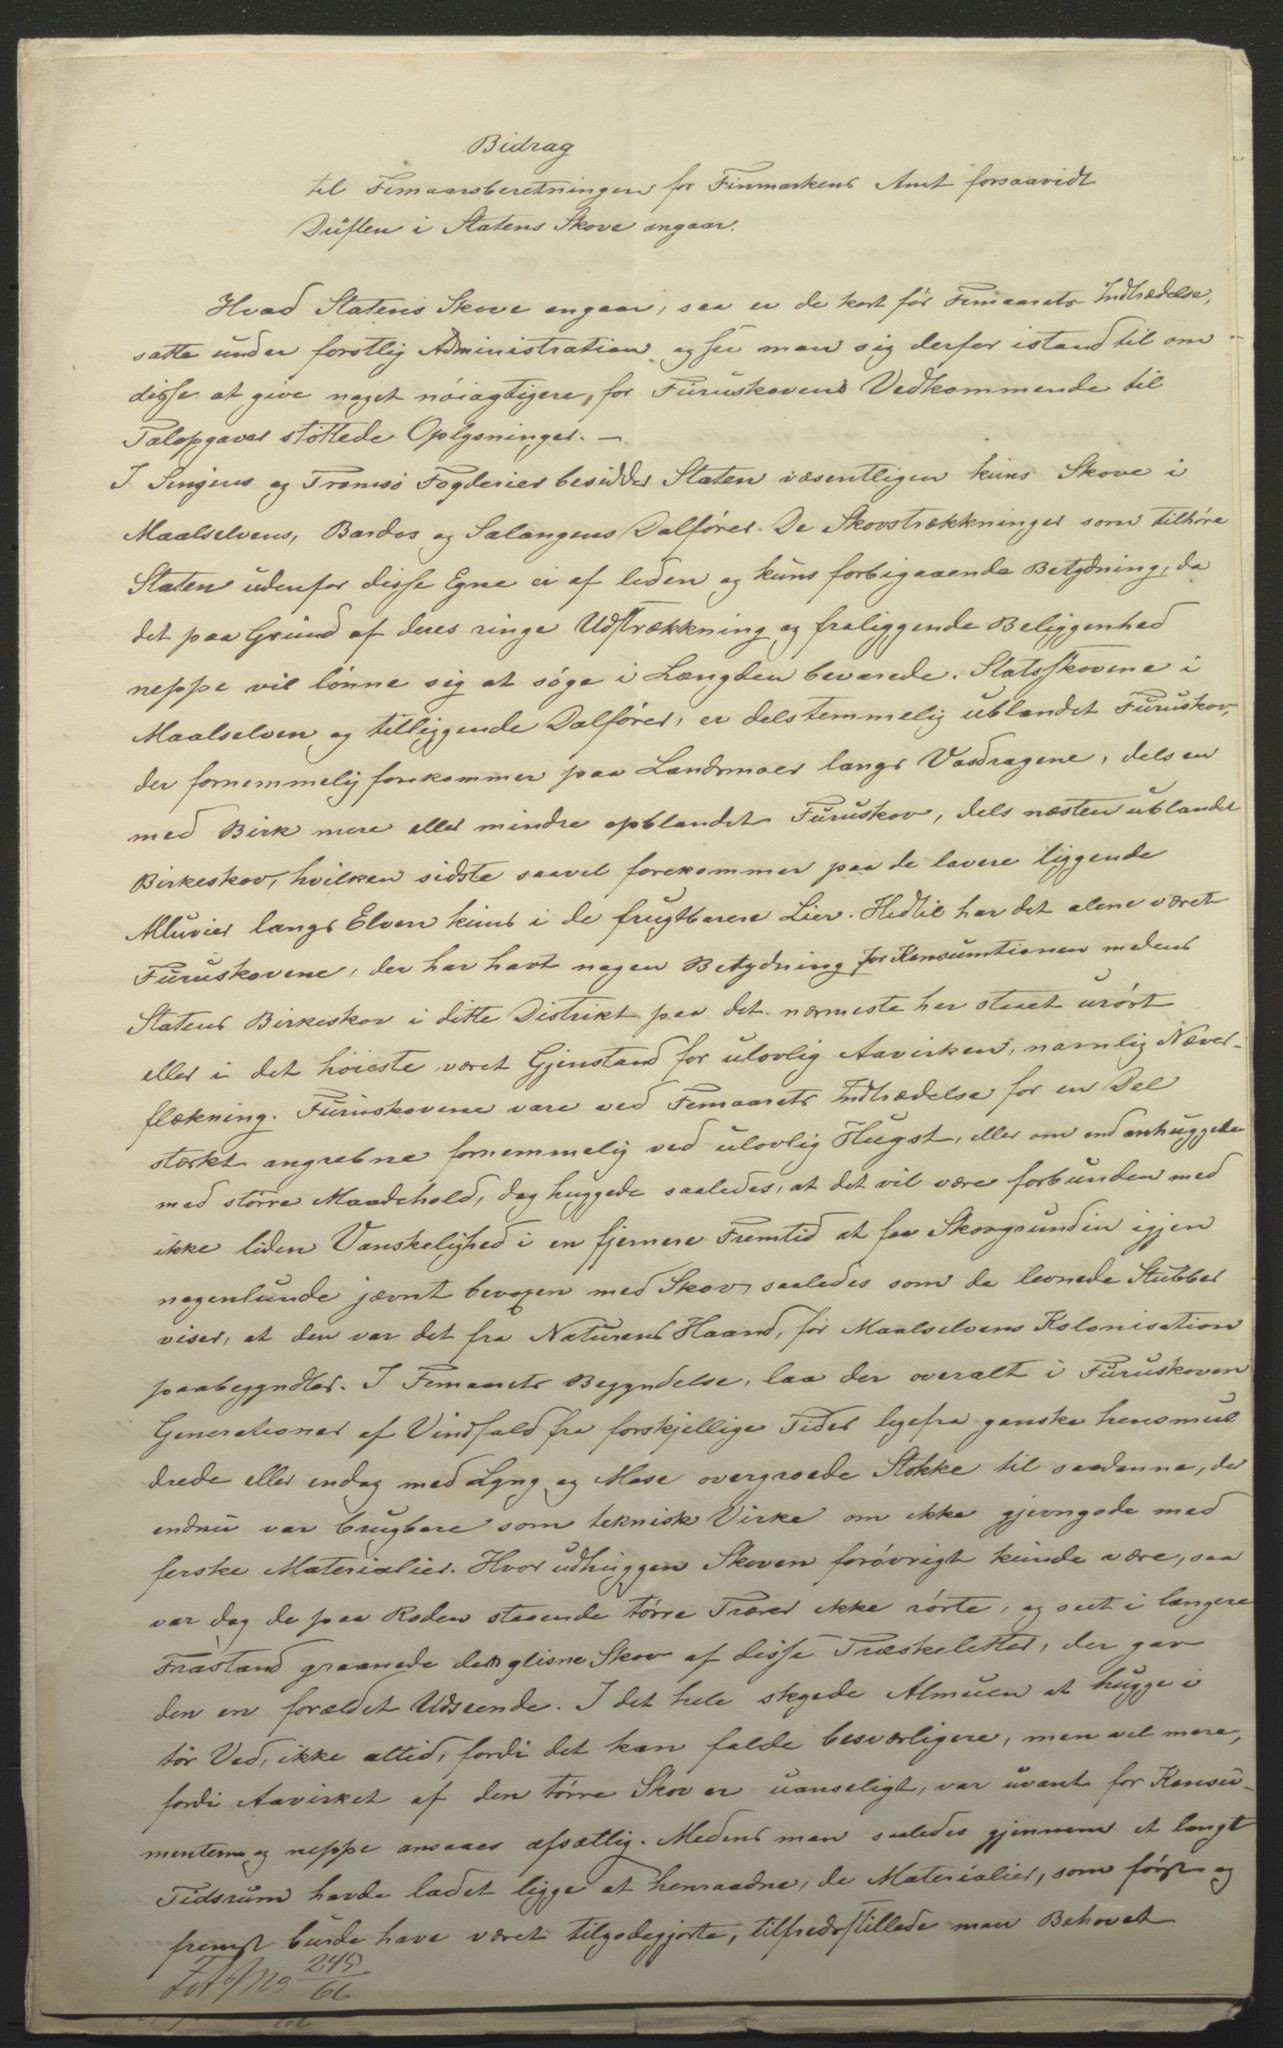 Bidrag
til Femaarsberetningen for Finmarkens Amt forsaavidt
Driften i Statens Skove angaar.
Hvad Statens Skove angaar, saa er de kort før Femaarets Indtrædelse,
satte under forstlig Administration og ser man sig derfor istand til om
disse at give noget nøiagtigere, for Furuskovens Vedkommende til
Talopgaver støttede Oplysninger. —
I Senjens og Tromsø Fogderier besidder Staten væsentligen kuns Skove i
Maalselvens, Bardos og Salangens Dalfører. De Skovstrækkninger som tilhøre
Staten udenfor disse Egne er af liden og kuns forbigaaende Betydning, da
det paa Grund af deres ringe Udstrækkning og fraliggende Beliggenhed
neppe vil lønne sig at søge i Længden bevarede. Statsskovene i
Maalselven og tilliggende Dalfører, er dels temmelig ublandet Furuskov,
der fornemmelig forekommer paa Landmoer langs Vasdragene, dels en
med Birk mere eller mindre opblandet Furuskov, dels næsten ublandet
Birkeskov, hvilken sidste saavel forekommer paa de lavere liggende
Alluvier langs Elven kuns i de frugtbarere Lier. Hidtil har det alene været
Furuskovene, der har havt nogen Betydning for Konsumtionen medens
Statens Birkeskov i dette Distrikt paa det nærmeste har staaet urørt
eller i det høieste været Gjenstand for ulovlig Aavirken, navnlig Næver-
flækning. Furuskovene vare ved Femaarets Indtrædelse for en Del
stærkt angrebne fornemmelig ved ulovlig Hugst, eller om end anhuggede
med større Maadehold, dog huggede saaledes, at det vil være forbunden med
ikke liden Vanskelighed i en fjernere Fremtid at faa Skovgrunden igjen
nogenlunde jævnt bevoxen med Skov, saaledes som de levnede Stubber
viser, at den var det fra Naturens Haand, før Maalselvens Kolonisation
paabegyndtes. I Femaarets Begyndelse, laa der overalt i Furuskoven
Generationer af Vindfald fra forskjellige Tider ligefra ganske hensmul
drede eller endog med Lyng og Mose overgroede Stokke til saadanne, der
endnu var brugbare som teknisk Virke om ikke gjevngode med
ferske Materialier. Hvor udhuggen Skoven forøvrigt kunde være, saa
var dog de paa Roden staaende tørre Træer ikke rørte, og seet i længere
Frastand graanede den glisne Skov af disse Træskeletter, der gav
den en forældet Udseende. I det hele skyede Almuen at hugge i
tør Ved, ikke altid, fordi det kan falde besværligere, men vel mere,
fordi Aavirket af den tørre Skov er uanseligt, var uvant for Konsu-
menterne og neppe ansaaes afsætlig. Medens man saaledes gjennem et langt
Tidsrum havde ladet ligge at henraadne, de Materialier, som først og
fremst burde have været tilgodegjorte, tilfredsstillede man Behovet
245
66